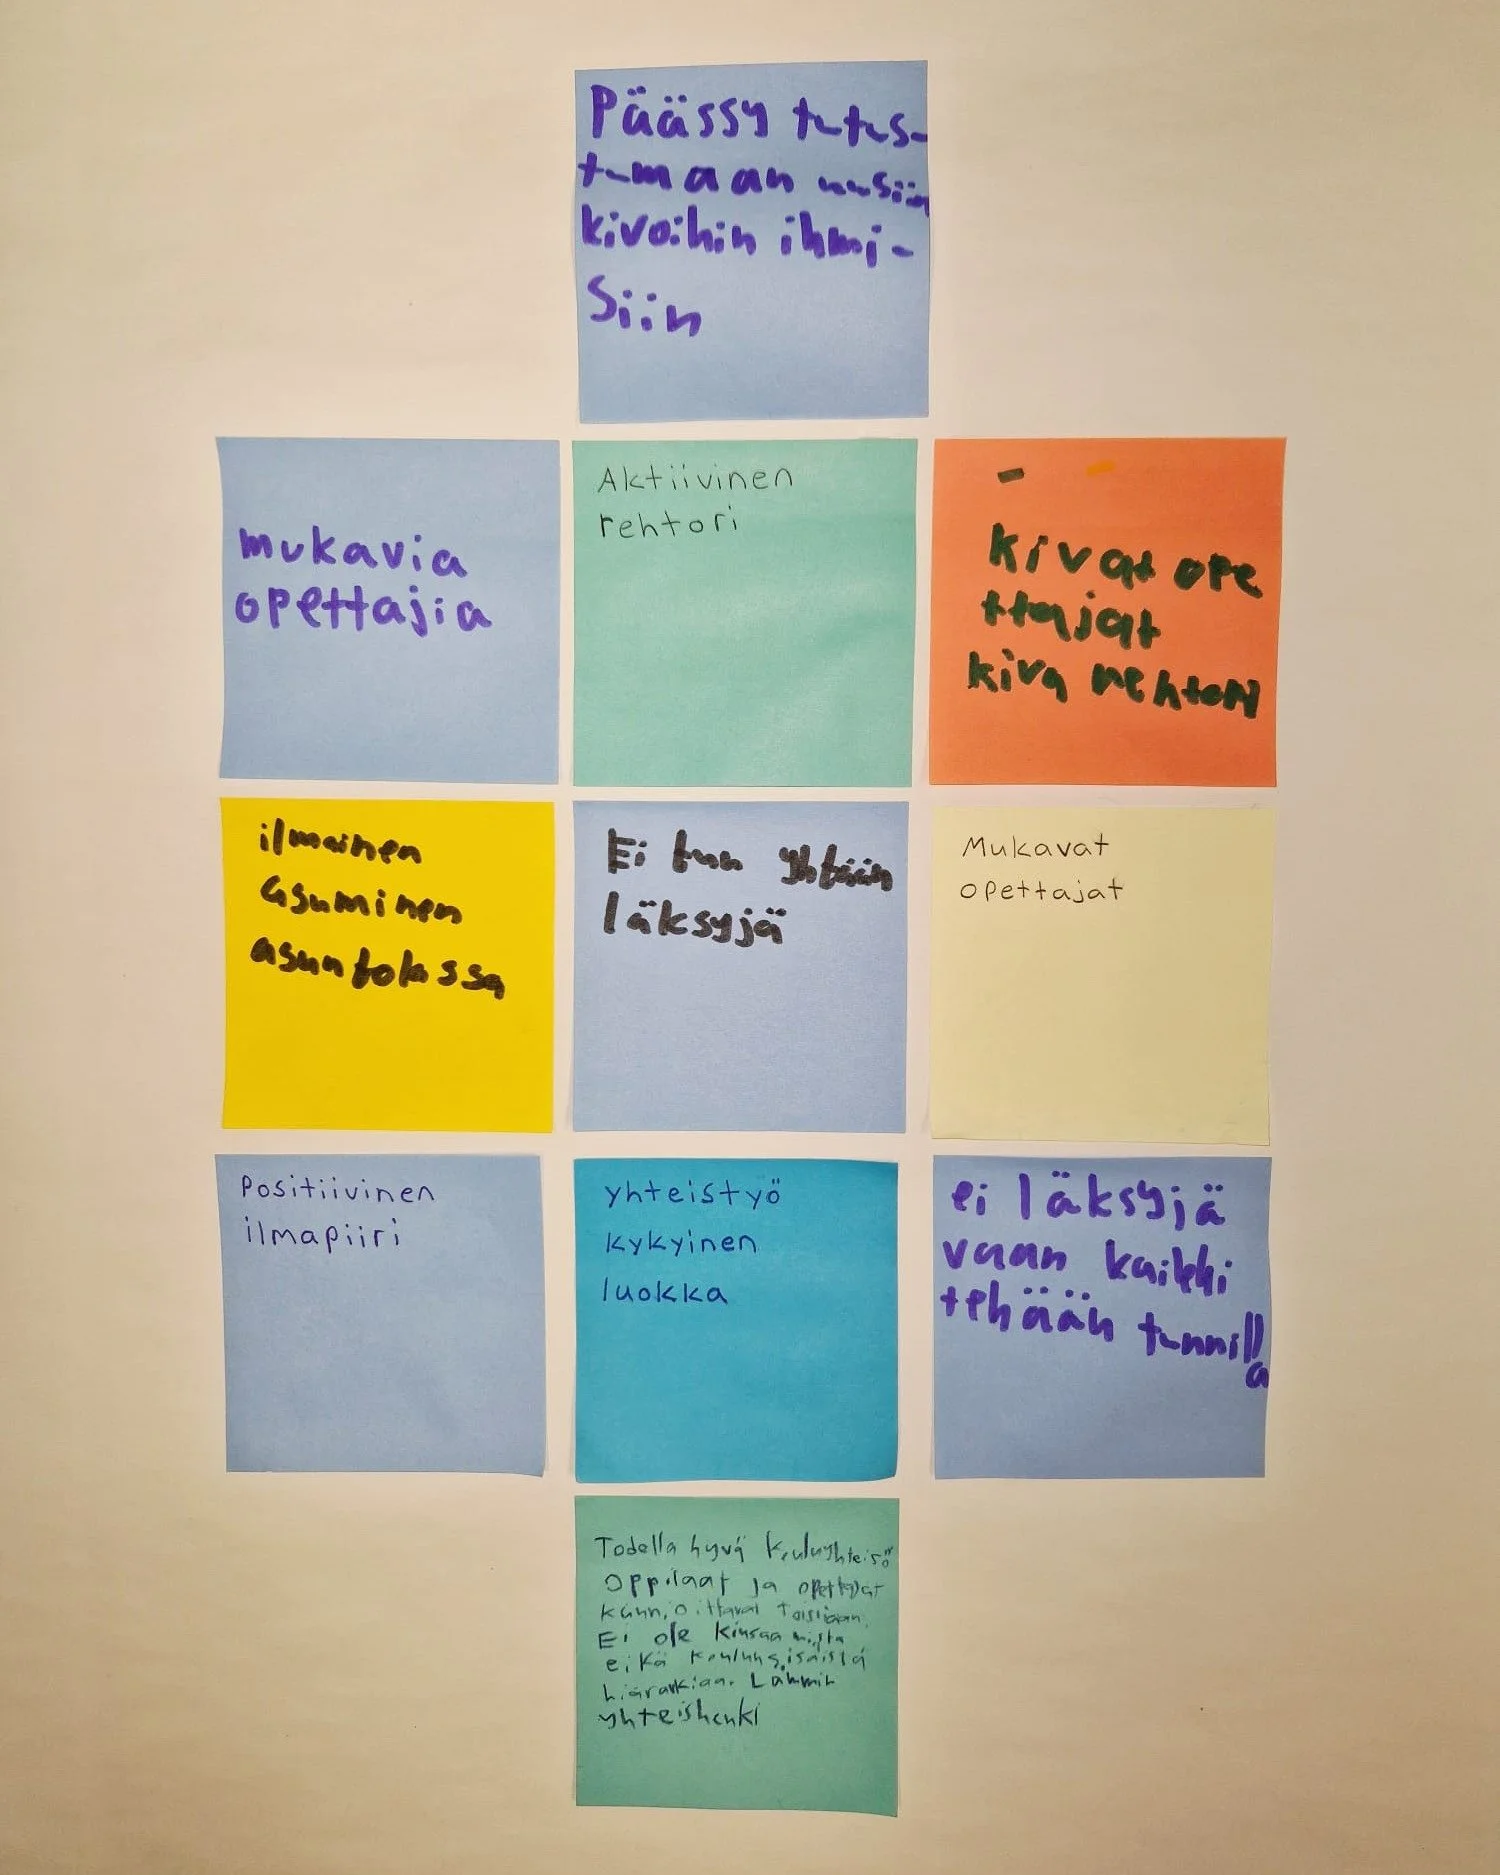 Päässy tutus-
tumaan uusiin
kivoihin ihmi-
siin
mukavia
opettajia
Aktiivinen
rehtori
kivat ope
ttajat
kiva rehtori
ilmainen
asuminen
asuntolassa
Ei tuu yhtään
läksyjä
Mukavat
opettajat
Positiivinen
ilmapiiri
yhteistyö
kykyinen
luokka
ei läksyjä
vaan kaikki
tehään tunnilla
Todella hyvä kouluyhteisö
oppilaat ja opettajat
kunnioittavat toisiaan.
Ei ole kiusaamista
eikä koulunsisäistä
hierarkiaa. Lämmin
yhteishenki